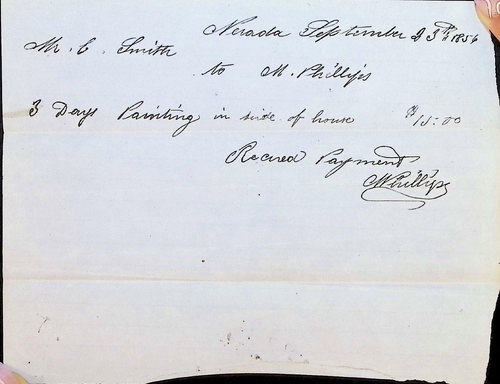 Nevada September 23rd 1856
Mr. C. Smith
to M. Phillips
3 Days Painting in side of house $15.00
Recived Payment
M Phillips